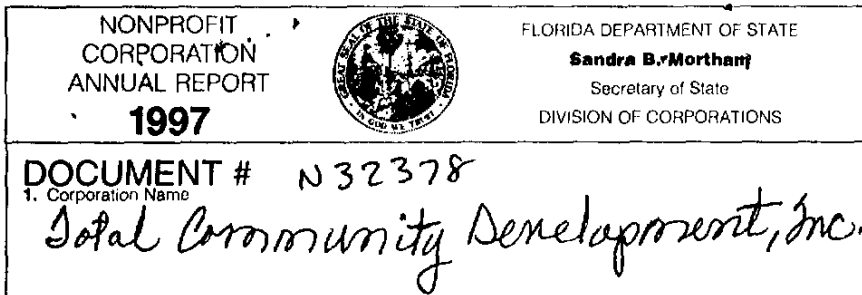 NONPROFIT
CORPORATION
ANNUAL REPORT
1997
GREAT SEAL OF THE STATE OF FLORIDA
IN GOD WE TRUST
FLORIDA DEPARTMENT OF STATE
Sandra B. Mortham
Secretary of State
DIVISION OF CORPORATIONS
DOCUMENT # N32378
1. Corporation Name
Total Community Development, Inc.